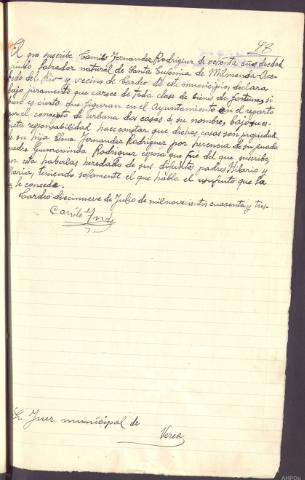 83
El que suscribe Camilo Fernandez Rodriguez de sesenta años de edad
viudo labrador natural de Santa Eufemia de Milmanda
del Rio y vecino de Cordeo de este municipio, declara
bajo juramento que carece de toda clase de bienes de fortuna, si
que es cierto que figuran en el Ayuntamiento en el reparto
por el concepto de urbana dos casas a su nombre, bajo su
responsabilidad hace constar que dichas casas son propiedad
de su hija Elena Fernandez Rodriguez por herencia de su finada
madre Gumersinda Rodriguez esposa que fué del que suscribe,
que esta habíalas heredado de sus difuntos padres Hilario y
Maria, teniendo solamente el que habla el usufruto que la
le concede.
Cordeo diecinueve de Julio de mil novecientos cuarenta y tres.
Camilo Frndz
Sr. Juez municipal de
Verea